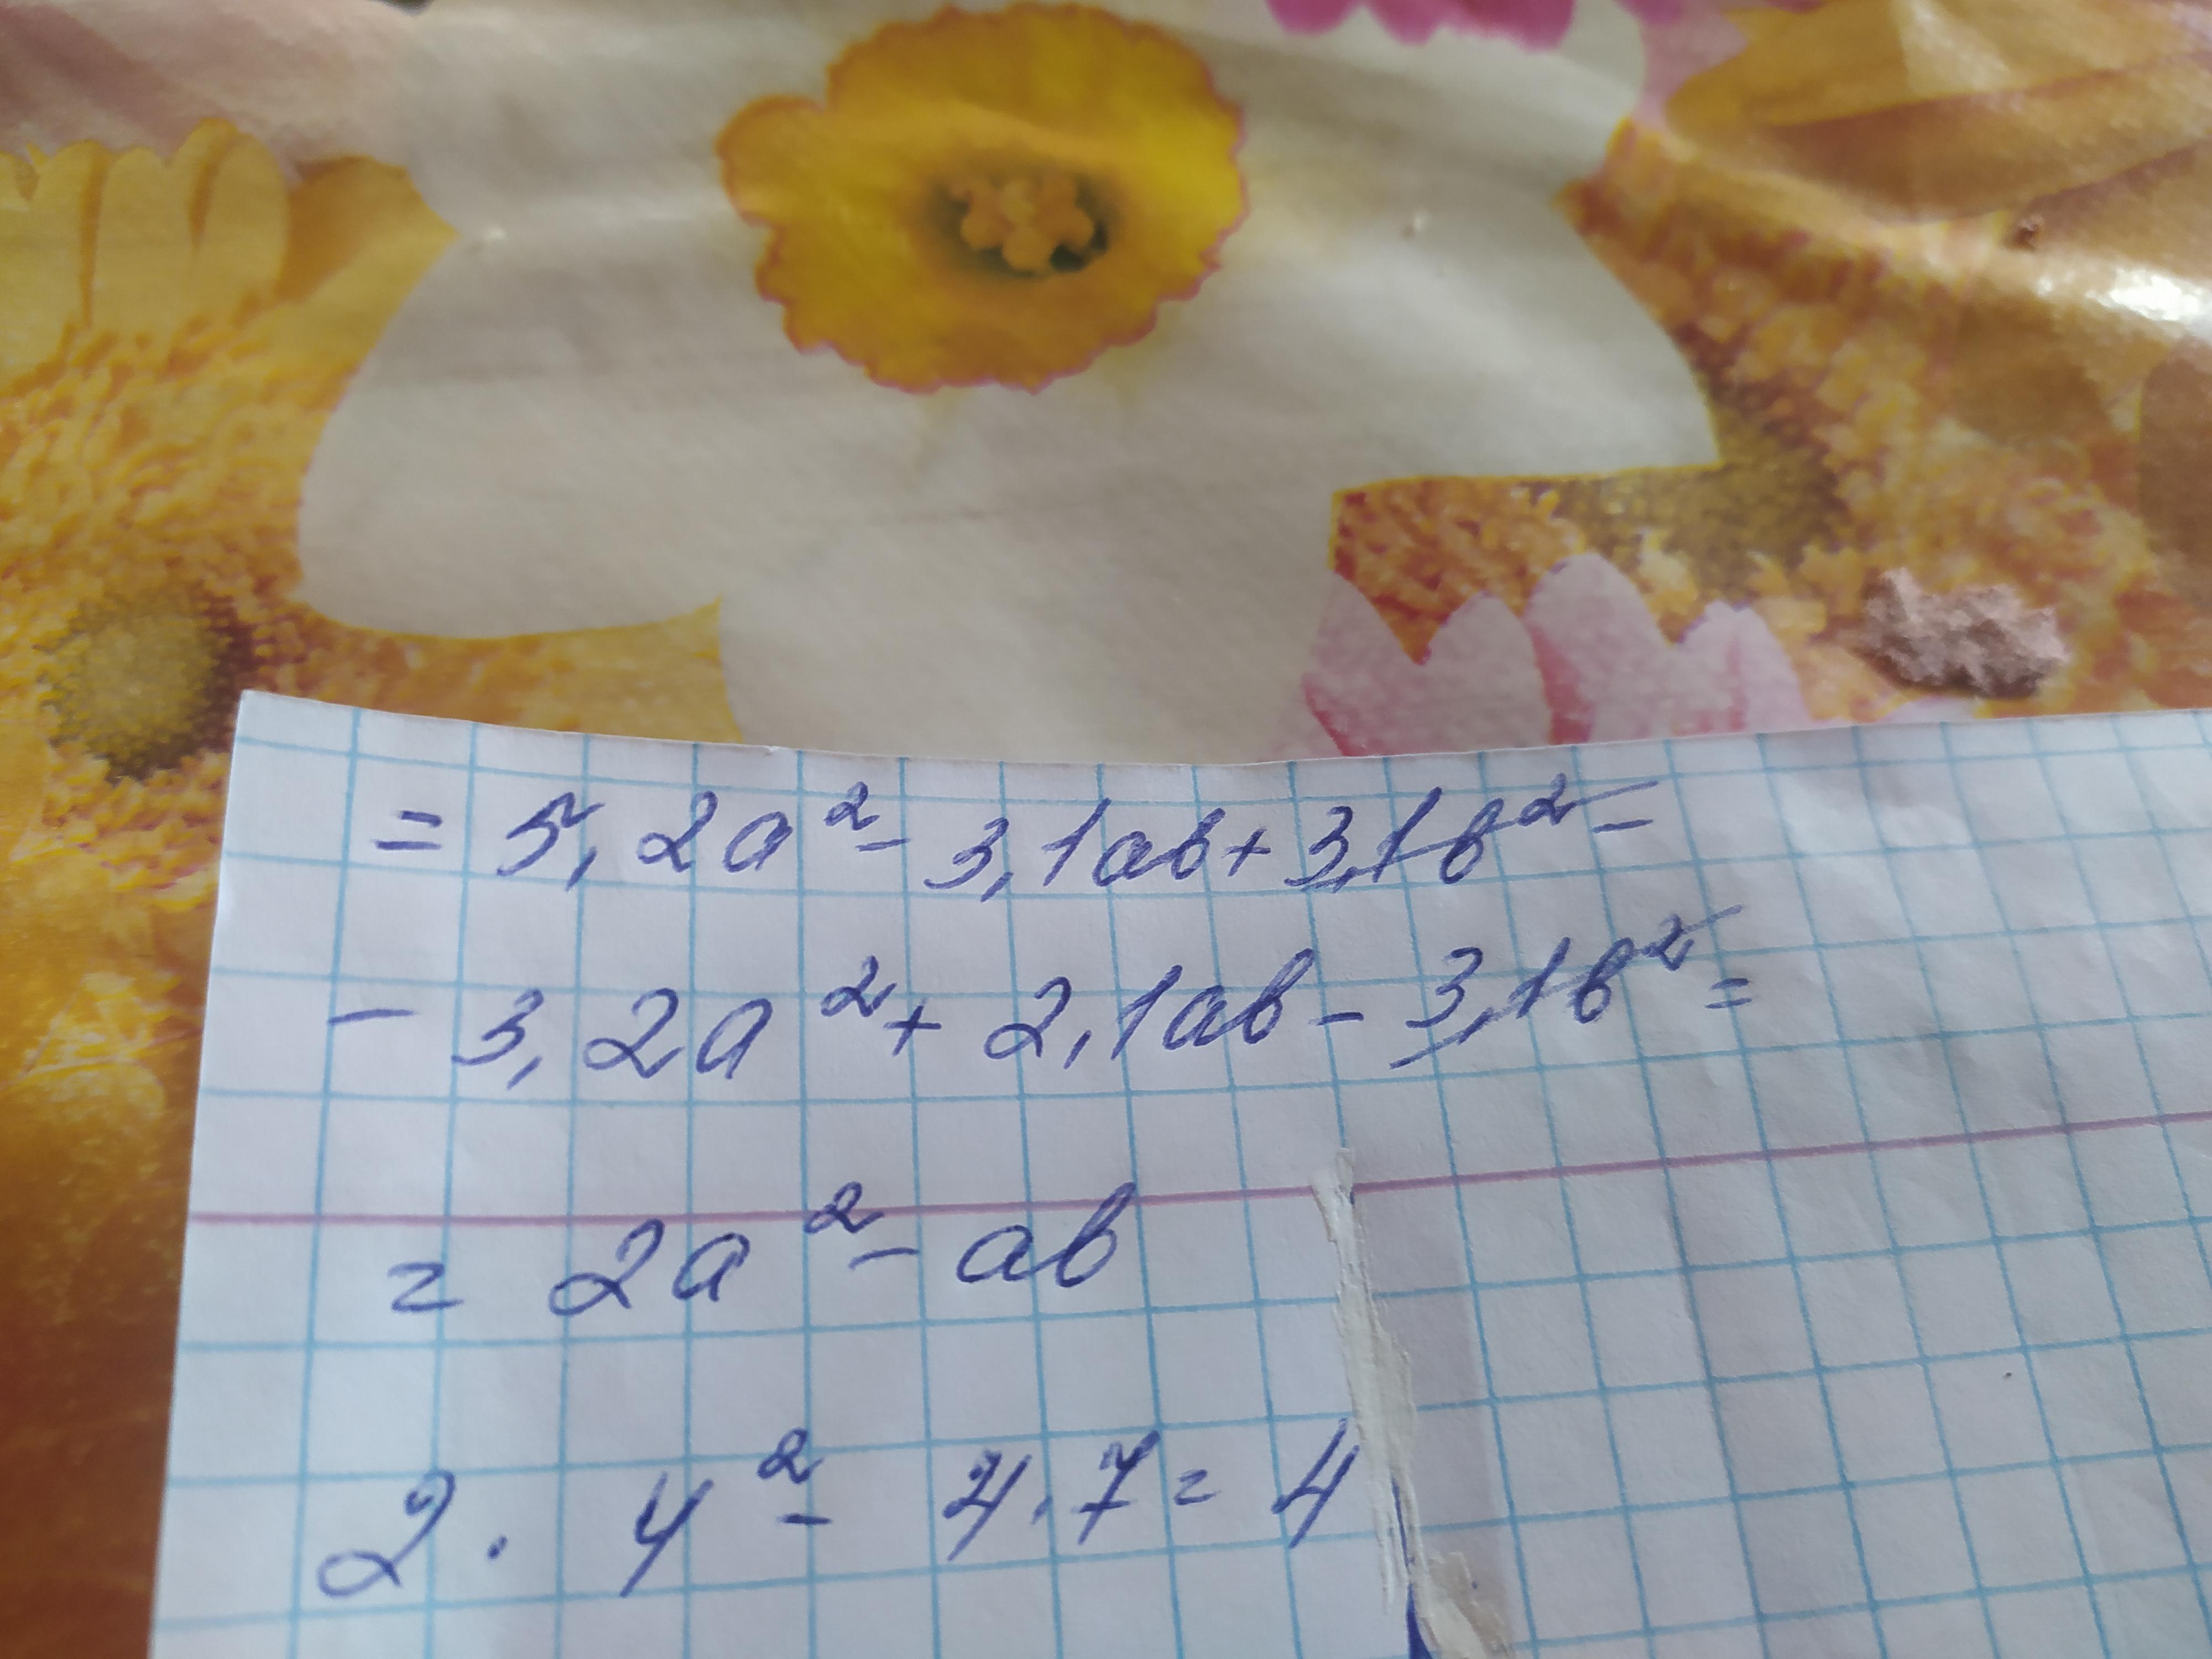 = 5,2a² - 3,1ab + 3,1b² -
- 3,2a² + 2,1ab - 3,1b² =
= 2a² - ab
2 · 4² - 4 · 7 = 4